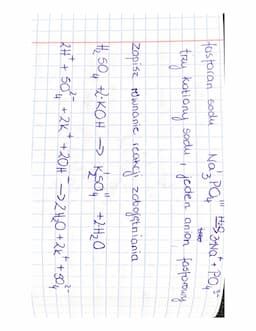 fosforan sodu Na₃ᴵPO₄ᴵᴵᴵ 3Na⁺ + PO₄³⁻
trzy kationy sodu, jeden anion fosforanowy
zapisz równanie reakcji zobojętniania
H₂SO₄ + 2KOH → K₂ᴵSO₄ᴵᴵ + 2H₂O
2H⁺ + SO₄²⁻ + 2K⁺ + 2OH⁻ → 2H₂O + 2K⁺ + SO₄²⁻